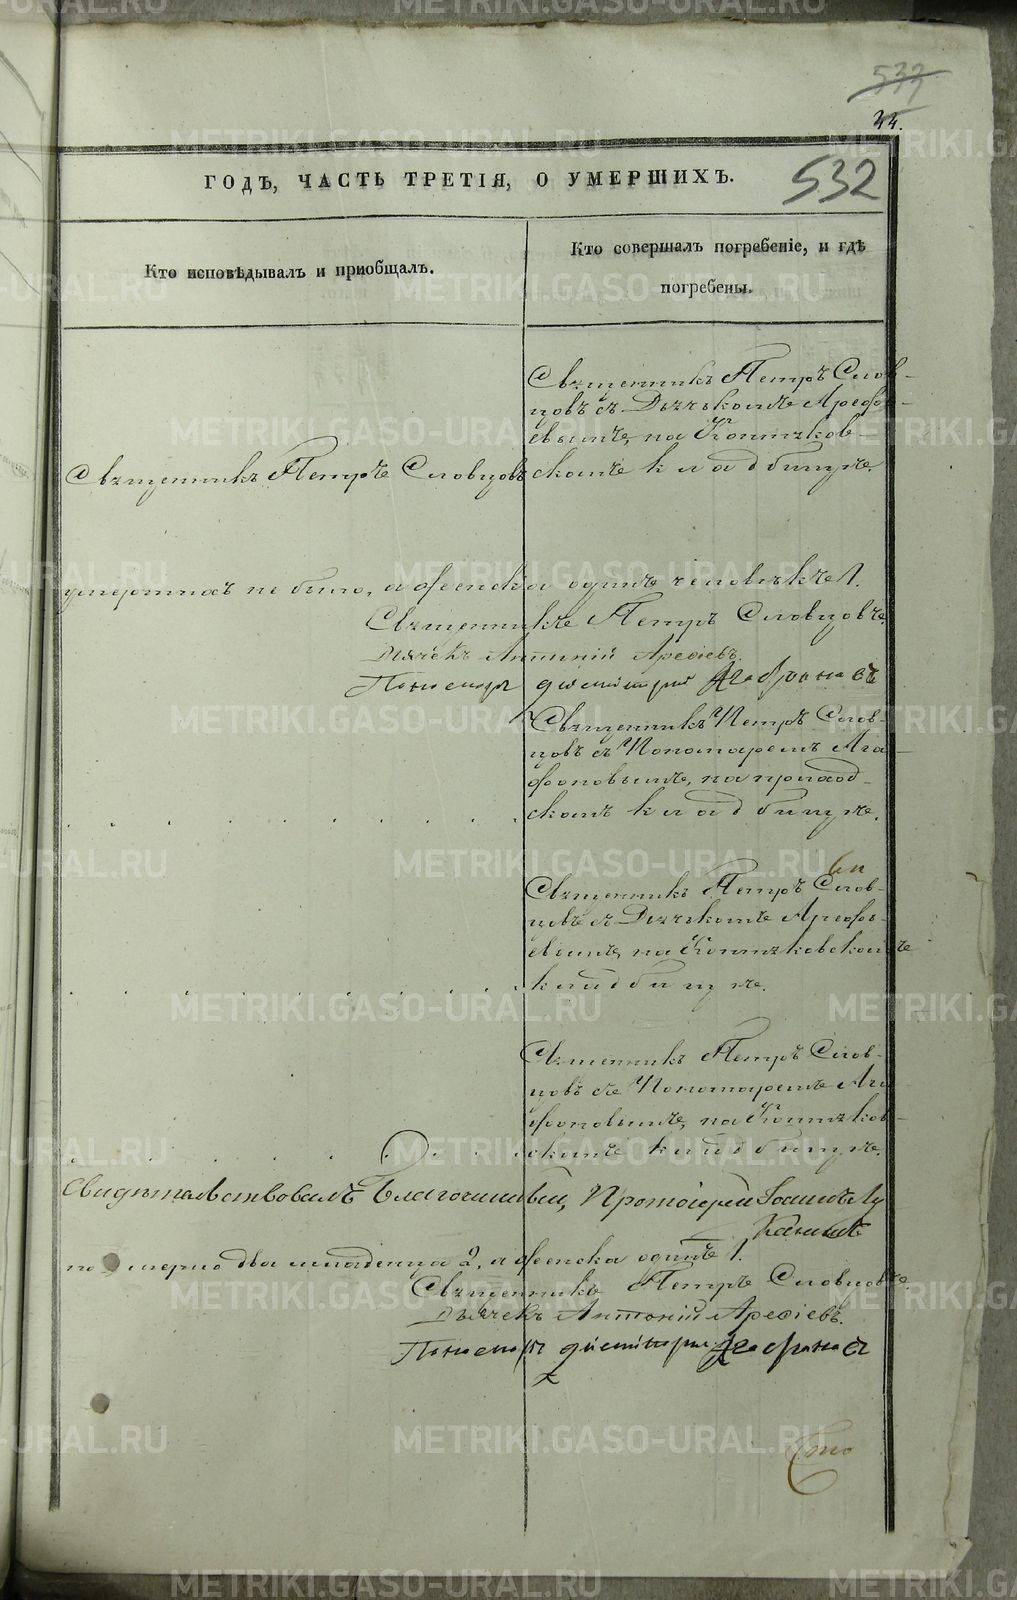 533
44.
532
ГОДЪ, ЧАСТЬ ТРЕТІЯ, О УМЕРШИХЪ.
Кто исповѣдывалъ и пріобщалъ.
Кто совершалъ погребеніе, и гдѣ
погребены.
Священникъ Петръ Слов-
цовъ съ Дьячкомъ Арефь-
евымъ, на
скомъ кладбищѣ.
Священникъ Петръ Словцовъ
умершихъ не было, а женска одинъ человѣкъ 1.
Священникъ Петръ Словцовъ
Дьячекъ Антоній Арефіевъ.
Пономарь Димитрій Агафоновъ
Священникъ Петръ Слов-
цовъ съ Пономаремъ Ага-
фоновымъ, на приход-
скомъ кладбищѣ.
Священникъ Петръ Слов-
цовъ съ Дьячкомъ Арефь-
евымъ, на
кладбищѣ.
Священникъ Петръ Слов-
цовъ съ Пономаремъ Ага
фоновымъ, на
скомъ кладбищѣ.
Свидѣтельствовалъ Благочинный, Протоіерей Іоаннъ Лу
канинъ
померло два младенца 2, а женска одинъ 1.
Священникъ Петръ Словцовъ
Дьячекъ Антоній Арефіевъ.
Пономарь Димитрій Агафоновъ
METRIKI.GASO-URAL.RU